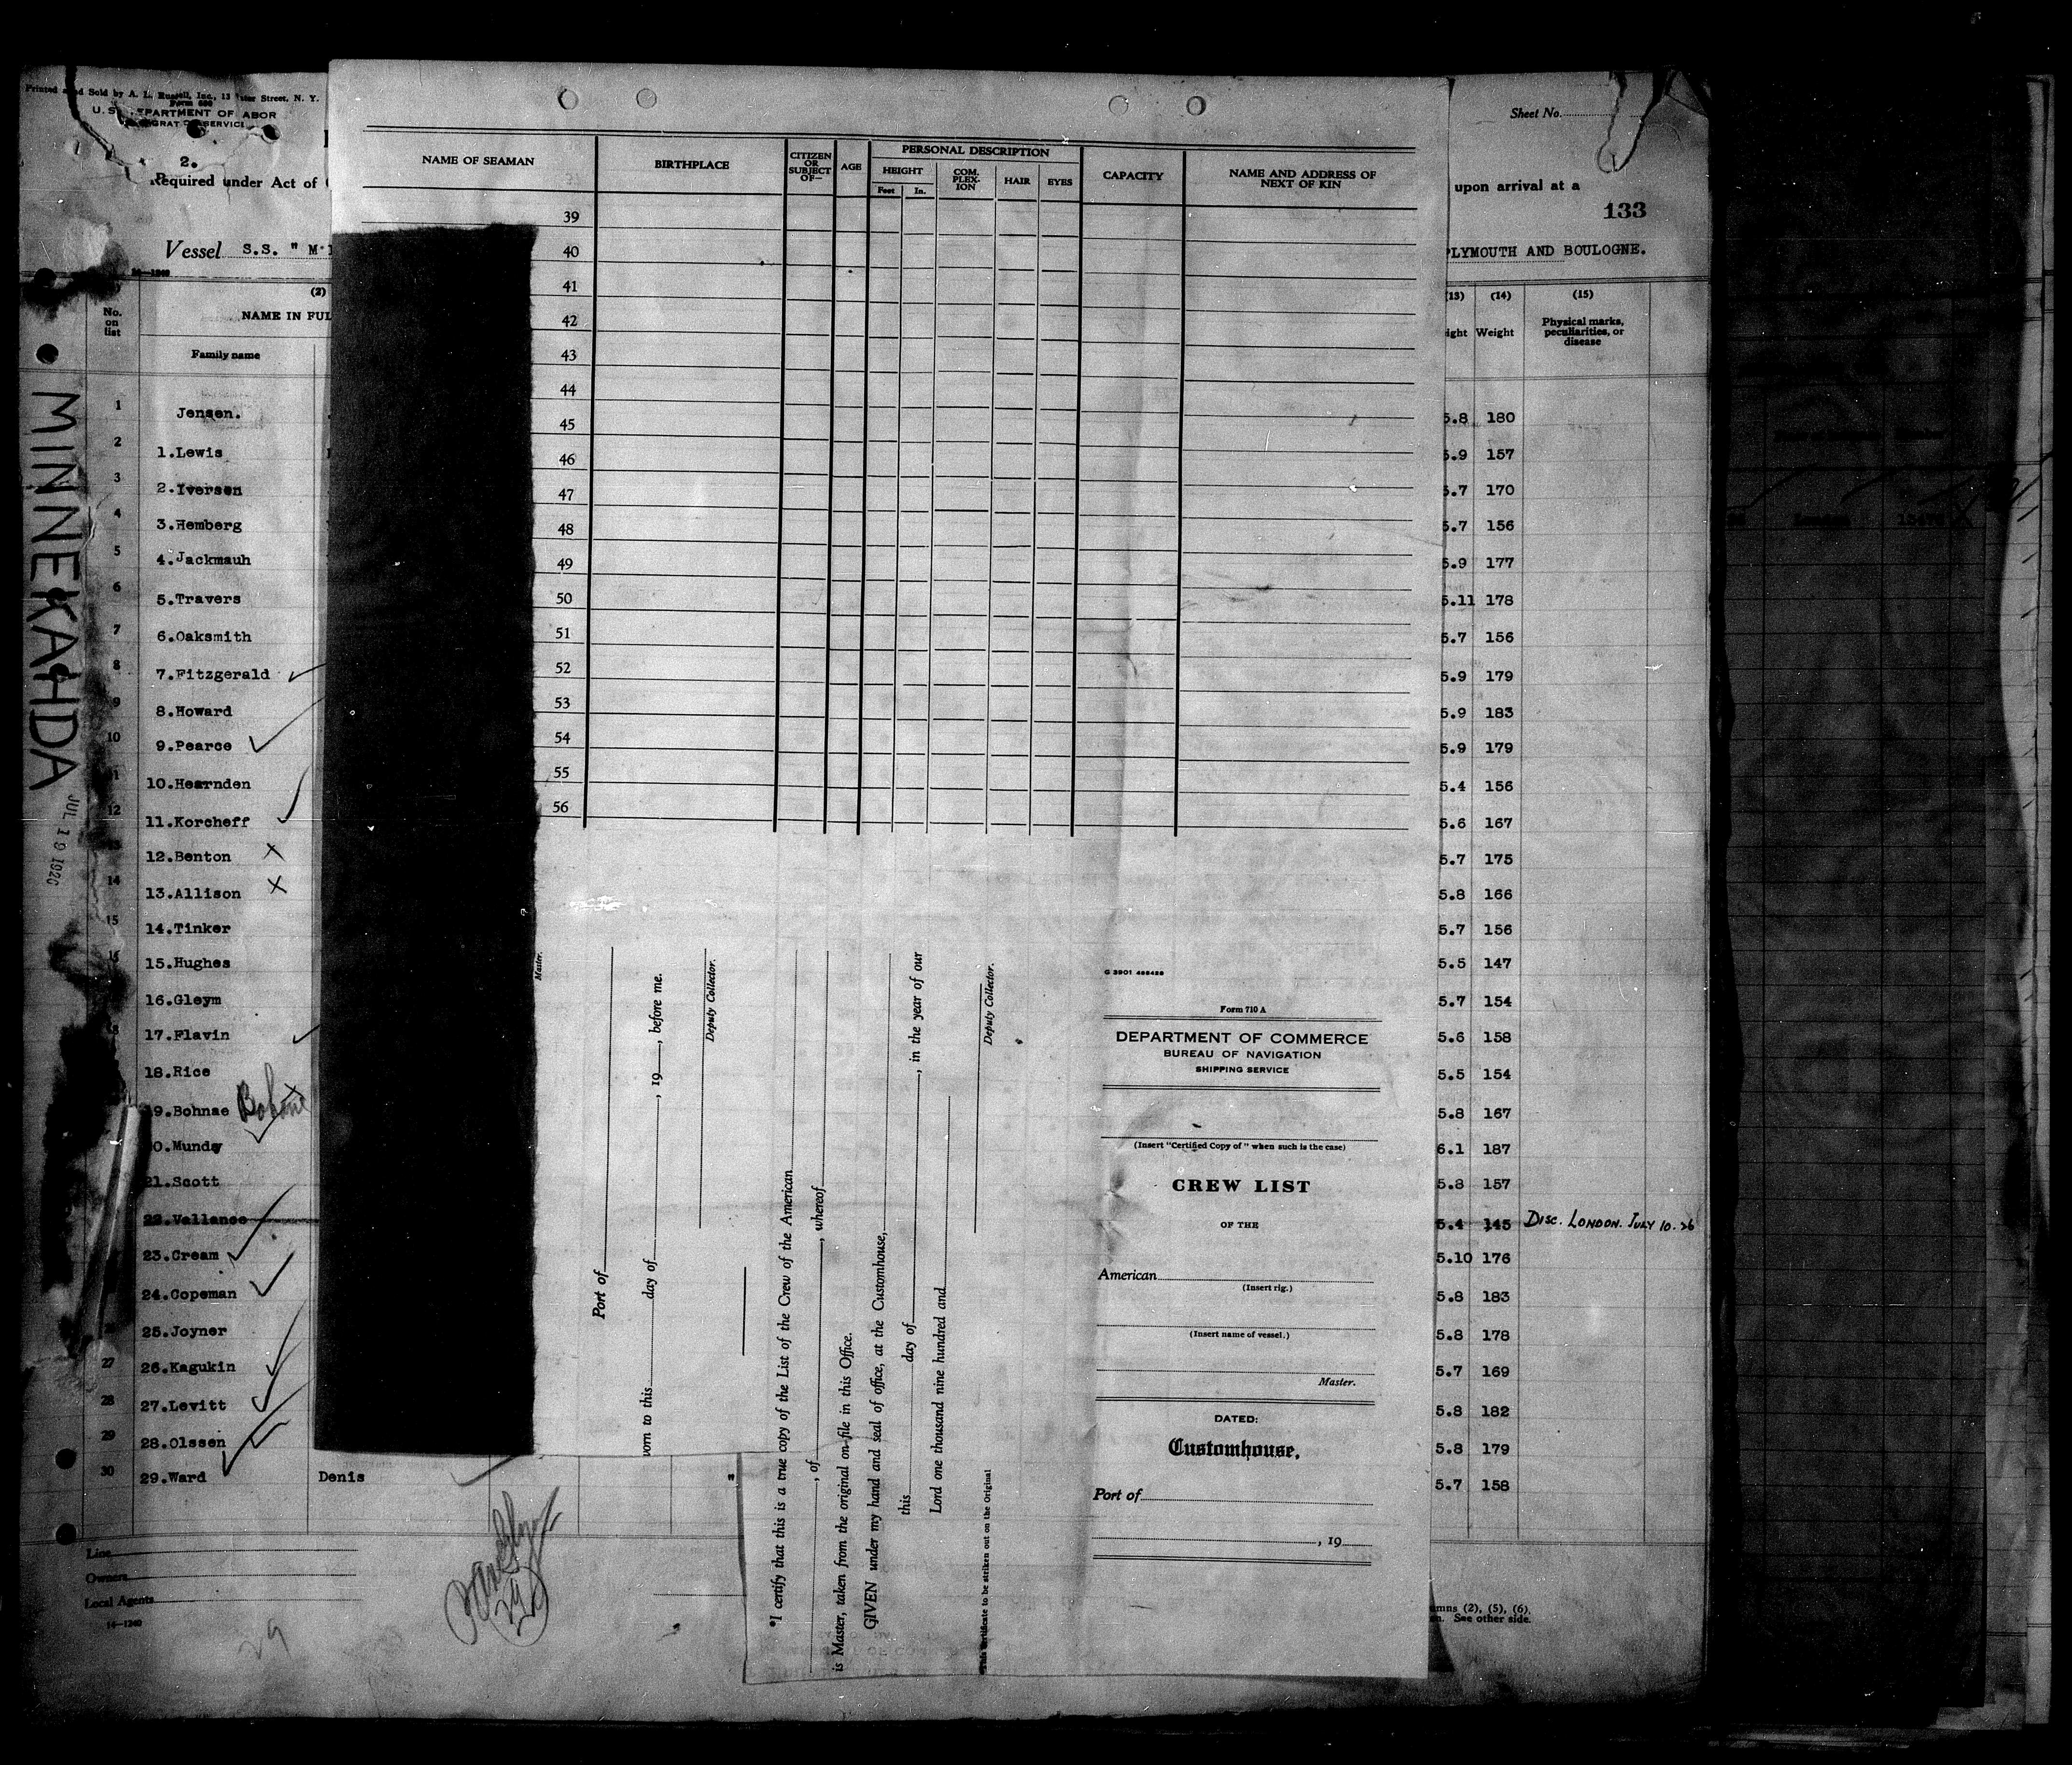 Printed and Sold by A. L. Russell, Inc., 13 Street, N. Y.
Form 680
U.S. DEPARTMENT OF ABOR
SERVICE
2.
Required under Act of
Vessel S.S. " M
14-1240
No. on list
(2)
NAME IN FUL
Family name
MINNEKAHDA
JUL 19 1926
1 Jensen.
2 1.Lewis
3 2.Iversen
4 3.Hemberg
5 4.Jackmauh
6 5.Travers
7 6.Oaksmith
8 7.Fitzgerald
9 8.Howard
10 9.Pearce
11 10.Hearnden
12 11.Korcheff
13 12.Benton
14 13.Allison
15 14.Tinker
16 15.Hughes
16.Gleym
18 17.Flavin
18.Rice
19.Bohnae Bohne
0.Mundy
21.Scott
22.Vallance
23.Cream
24.Copeman
25.Joyner
27 26.Kagukin
28 27.Levitt
29 28.Olssen
30 29.Ward Denis "
Line
Owners
Local Agents
14-1240
29
NAME OF SEAMAN
BIRTHPLACE
CITIZEN OR SUBJECT OF—
AGE
PERSONAL DESCRIPTION
HEIGHT
Feet In.
COM-PLEX-ION
HAIR
EYES
CAPACITY
NAME AND ADDRESS OF NEXT OF KIN
39
40
41
42
43
44
45
46
47
48
49
50
51
52
53
54
55
56
Master.
Port of
worn to this day of , 19 , before me.
Deputy Collector.
*I certify that this is a true copy of the List of the Crew of the American
, of , whereof
is Master, taken from the original on file in this Office.
GIVEN under my hand and seal of office, at the Customhouse,
this day of , in the year of our
Lord one thousand nine hundred and
Deputy Collector.
*This certificate to be striken out on the Original
G 3901 488486
Form 710 A
DEPARTMENT OF COMMERCE
BUREAU OF NAVIGATION
SHIPPING SERVICE
(Insert "Certified Copy of" when such is the case)
CREW LIST
OF THE
American
(Insert rig.)
(Insert name of vessel.)
Master.
DATED:
Customhouse,
Port of
, 19
Sheet No.
upon arrival at a
133
PLYMOUTH AND BOULOGNE.
(13) (14) (15)
ight Weight Physical marks, peculiarities, or disease
5.8 180
5.9 157
5.7 170
5.7 156
5.9 177
5.11 178
5.7 156
5.9 179
5.9 183
5.9 179
5.4 156
5.6 167
5.7 175
5.8 166
5.7 156
5.5 147
5.7 154
5.6 158
5.5 154
5.8 167
6.1 187
5.8 157
5.4 145 DISC. LONDON. JULY 10.26
5.10 176
5.8 183
5.8 178
5.7 169
5.8 182
5.8 179
5.7 158
umns (2), (5), (6),
n. See other side.